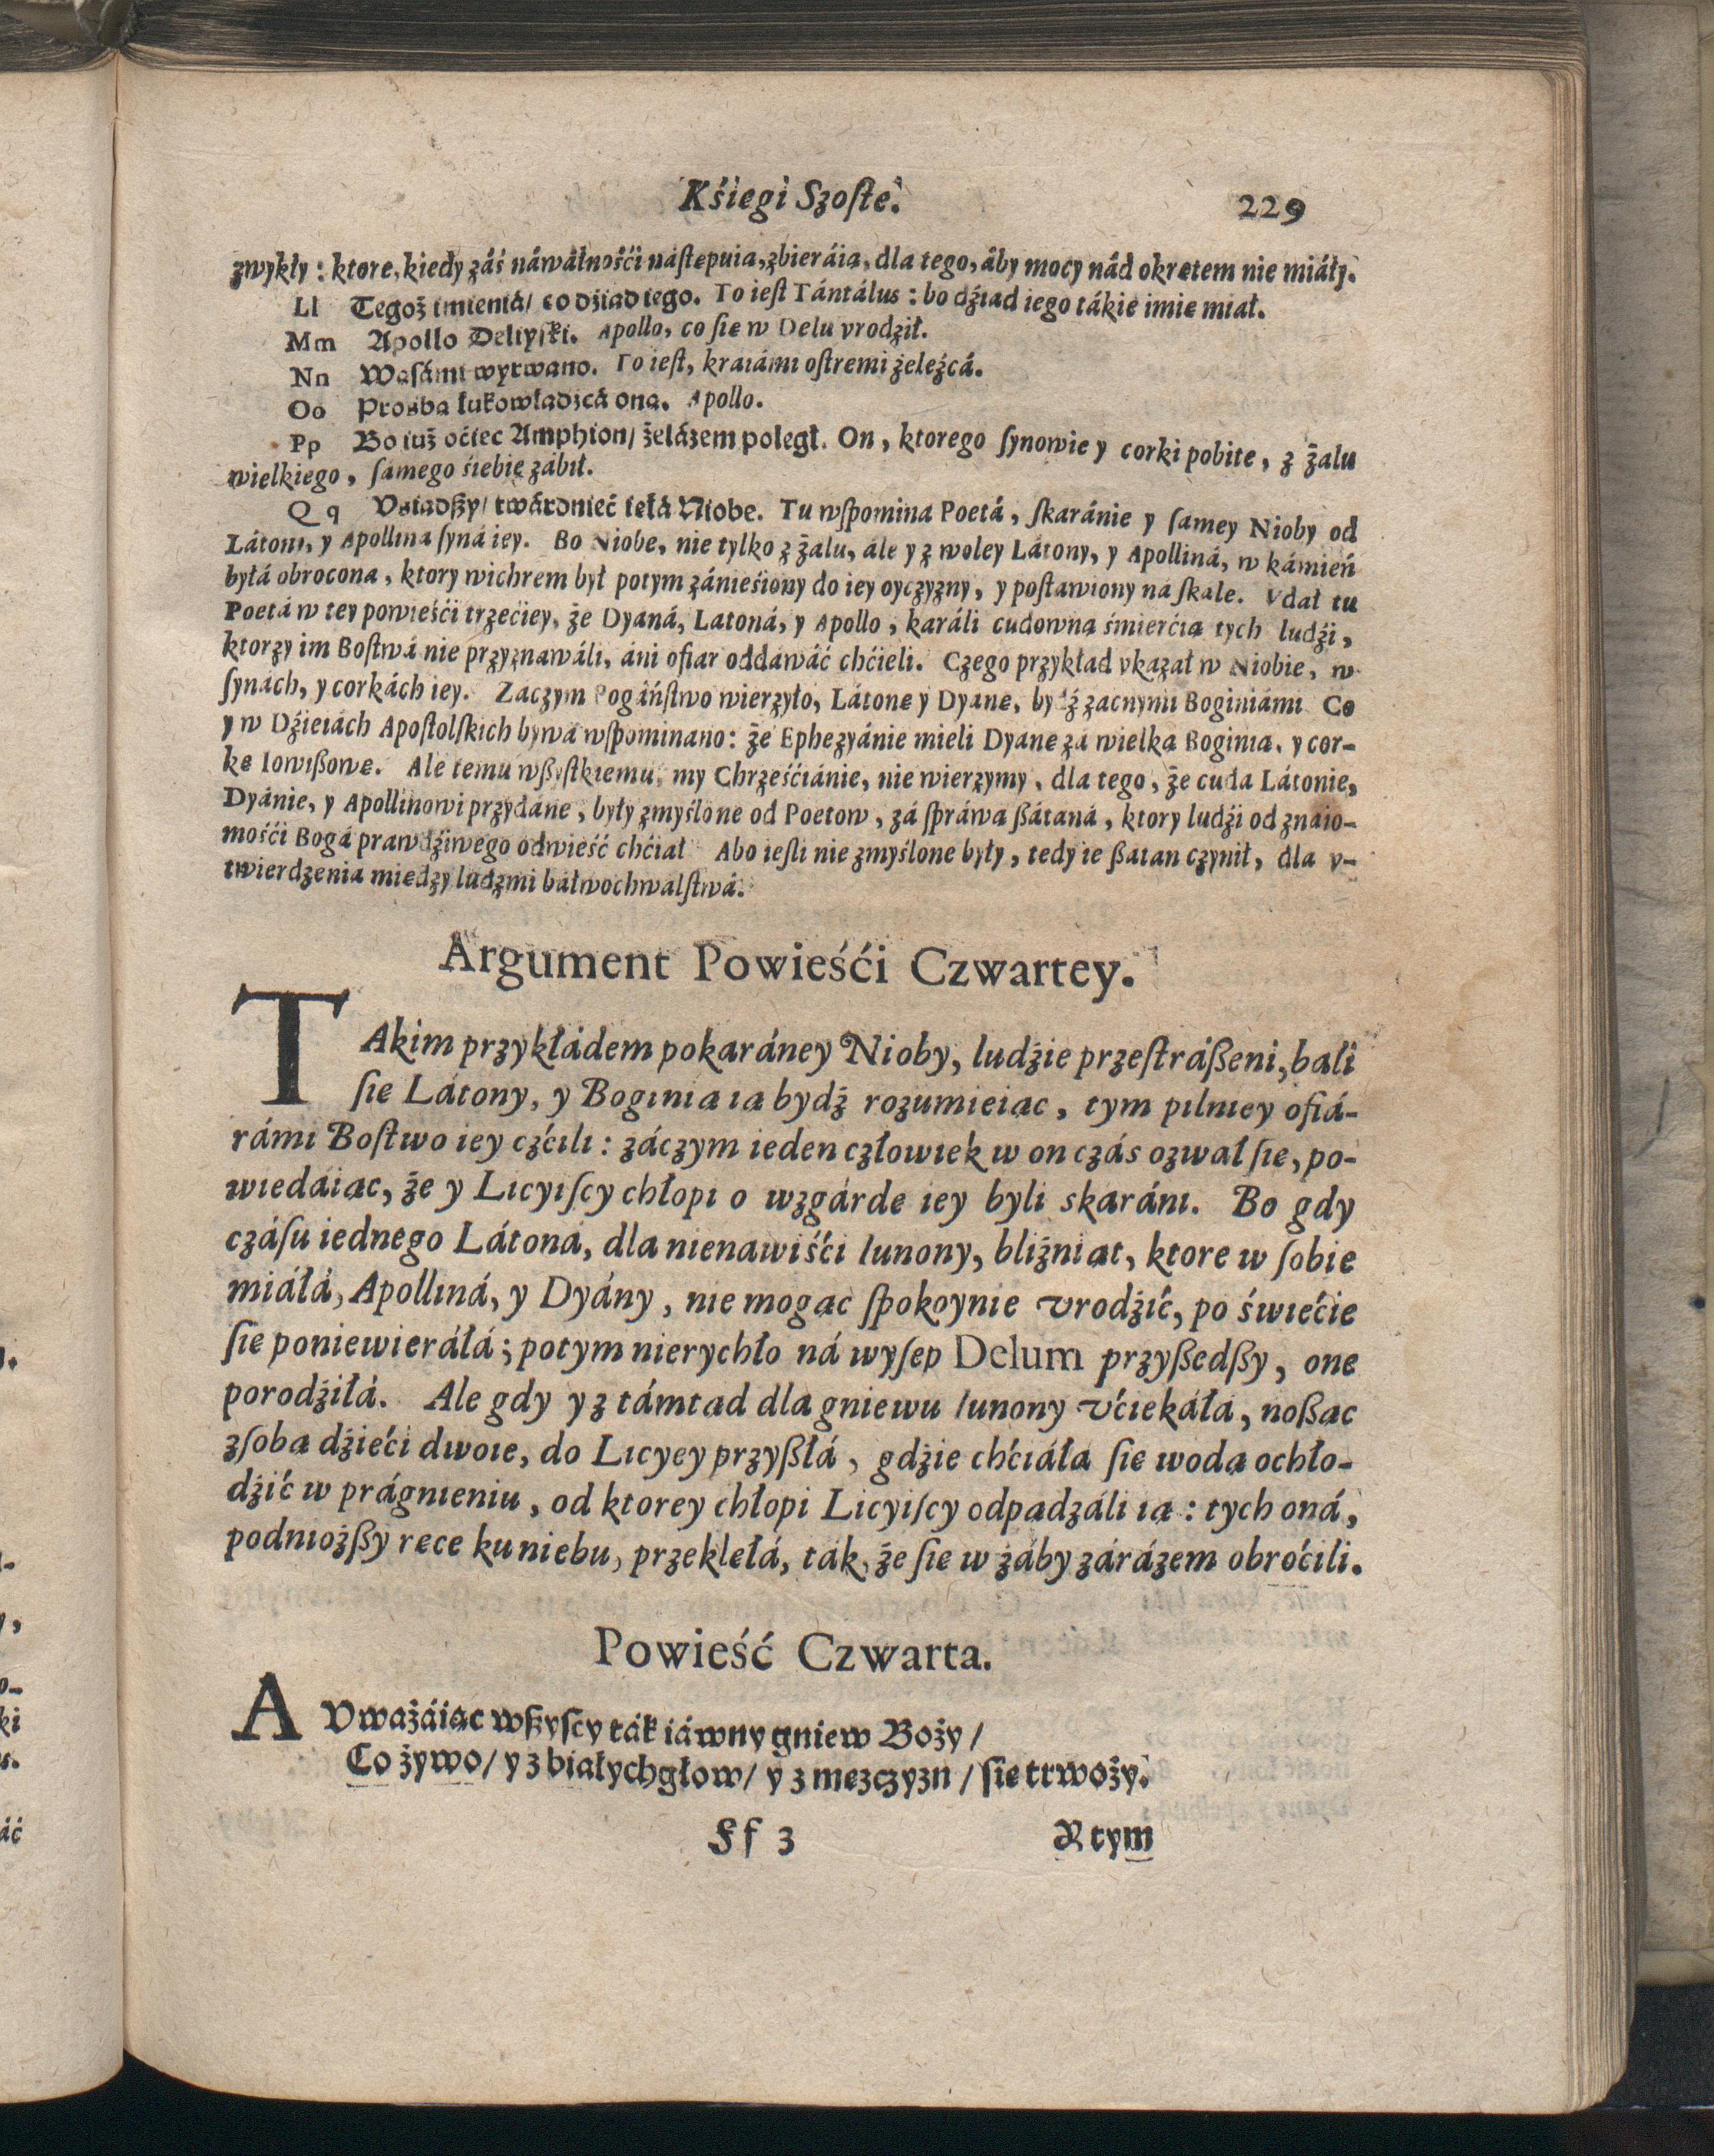 Kśięgi Szoſte.
229
zwykły : ktore, kiedy záś náwáłnośći náſtępuią, zbieráią, dla tego, áby mocy nád okrętem nie miáły.
Ll Tegoż imieniá/ co dziad iego. To ieſt Tántálus : bo dźiad iego tákie imię miał.
Mm Apollo Deliyſki. Apollo, co ſię w Delu vrodził.
Nn Wąſámi wyrwano. To ieſt, kráiámi oſtremi żeleźcá.
Oo Prośba łukowładzcá oná. Apollo.
Pp Bo iuż oćiec Amphion/ żelázem poległ. On, ktorego ſynowie y corki pobite, z żalu
wielkiego, ſamego śiebię zábił.
Qq Vsiadſzy/ twárdnieć ięłá Niobe. Tu wſpomina Poetá, ſkaránie y ſamey Nioby od
Látony, y Apolliná ſyná iey. Bo Niobe, nie tylko z żalu, ále y z woley Látony, y Apolliná, w kámień
byłá obrocona, ktory wichrem był potym zánieśiony do iey oyczyzny, y poſtáwiony ná ſkale. Vdał tu
Poetá w tey powieśći trzećiey, że Dyaná, Latoná, y Apollo, karáli cudowną śmierćią tych ludźi,
ktorzy im Boſtwá nie przyznawáli, áni ofiar oddáwáć chćieli. Czego przykład vkazał w Niobie, w
ſynách, y corkách iey. Záczym Pogáńſtwo wierzyło, Látonę y Dyánę, bydź zacnymi Boginiámi Co
y w Dźieiách Apoſtolſkich bywa wſpominano: że Ephezyánie mieli Dyánę zá wielką Boginią, y cor-
kę Iowiſzowę. Ale temu wſzyſtkiemu, my Chrześćiánie, nie wierzymy, dla tego, że cuda Látonie,
Dyánie, y Apollinowi przydáne, były zmyślone od Poetow, zá ſpráwą ſzátaná, ktory ludźi od znáio-
mośći Bogá prawdźiwego odwieść chćiał Abo ieſli nie zmyślone były, tedy ie ſzatan czynił, dla v-
twierdzenia między ludzmi báłwochwalſtwá.
Argument Powieśći Czwartey.
TAkim przykłádem pokaráney Nioby, ludźie przeſtráſzeni, bali
ſię Látony, y Boginią ią bydź rozumieiąc, tym pilniey ofiá-
rámi Boſtwo iey czćili : záczym ieden człowiek w on czás ozwał ſię, po-
wiedáiąc, że y Licyiſcy chłopi o wzgárdę iey byli skaráni. Bo gdy
czáſu iednego Látoná, dla nienawiśći Iunony, bliźniąt, ktore w ſobie
miáłá, Apolliná, y Dyány, nie mogąc ſpokoynie vrodźić, po świećie
ſię poniewieráłá ; potym nierychło ná wyſep Delum przyſzedſzy, one
porodźiłá. Ale gdy y z támtąd dla gniewu Iunony vćiekáłá, noſząc
z ſobą dźieći dwoie, do Licyey przyſzłá, gdźie chćiáła ſię wodą ochło-
dźić w prágnieniu, od ktorey chłopi Licyiſcy odpadzáli ią : tych oná,
podniożſzy ręce ku niebu, przeklęłá, ták, że ſię w żáby zárázem obroćili.
Powieść Czwarta.
A Vważáiąc wſzyſcy ták iáwny gniew Boży /
Co żywo/ y z białychgłow/ y z mężczyzn / ſię trwoży.
Ff 3
A tym